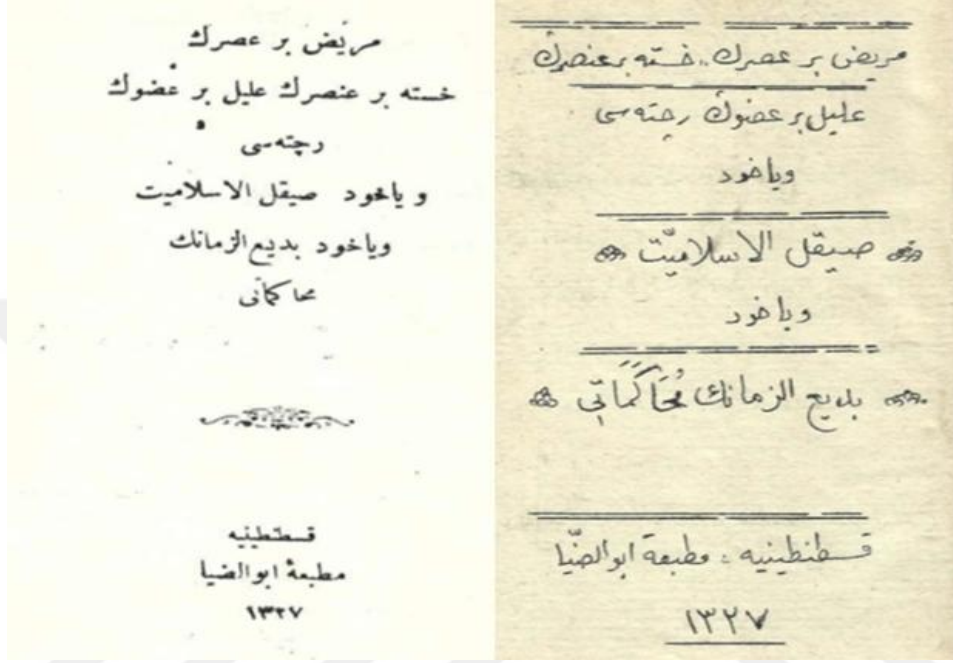 مريض بر عصرك
خسته بر عنصرك عليل بر عضوك
رچته سى
و ياخود صيقل الاسلاميت
وياخود بديع الزمانك
محاكماتى
قسطنطينيه
مطبعۀ ابوالضيا
١٣٢٧
مريض بر عصرك، خسته بر عنصرك
عليل بر عضوك رچته سى
وياخود
صيقل الاسلاميّت
وياخود
بديع الزمانك مُحَاكَمَاتِى
قسطنطينيه ، مطبعة ابوالضّيا
١٣٢٧